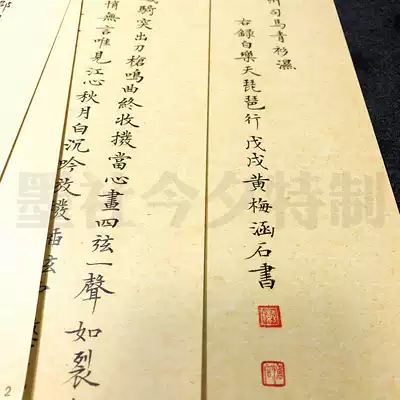 州司馬青衫濕
右錄白樂天琵琶行戊戌黃梅涵石書
騎突出刀槍鳴曲終收撥當心畫四弦一聲如裂
悄無言唯見江心秋月白沉吟放撥插弦
墨社今夕特制
2